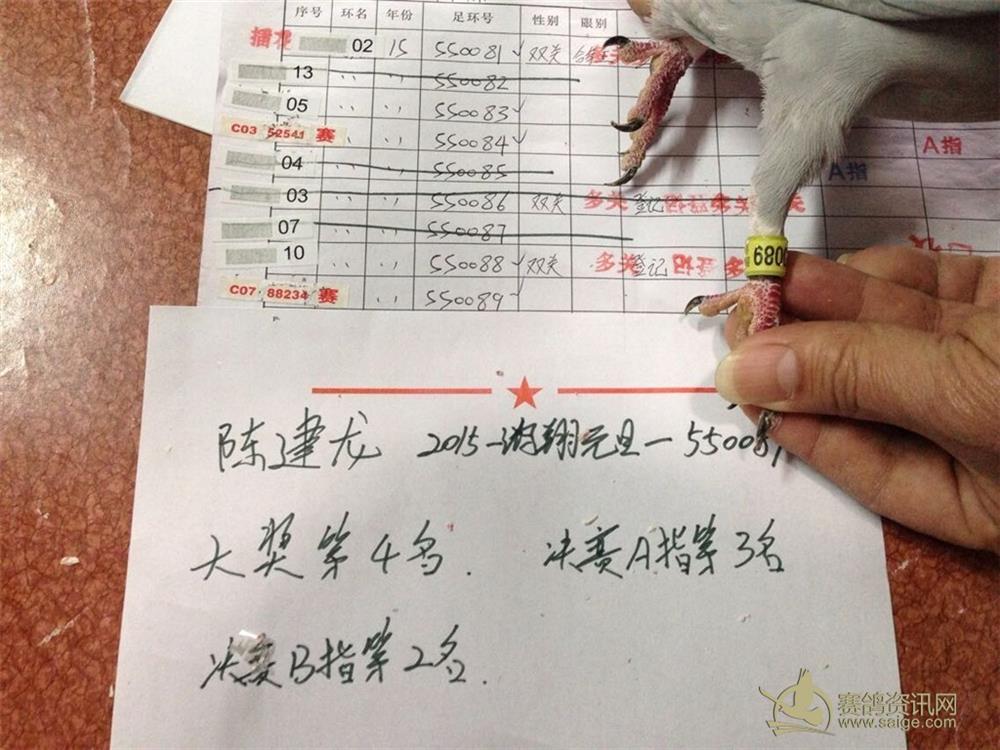 序号 环名 年份 足环号 性别 眼别
插花 02 15 550081 双关
13 〃 〃 550082
05 〃 〃 550083
C03 52541 赛 〃 〃 550084 A指
04 〃 〃 550085 A指
03 〃 〃 550086 双关 多关 登记 多关
07 〃 〃 550087
10 〃 〃 550088 双关 多关 登记
C07 88234 赛 〃 〃 550089
陈建龙 2015-游翔元旦-550081
大奖第4名. 决赛A指第3名
决赛B指第2名.
赛鸽资讯网
www.saige.com